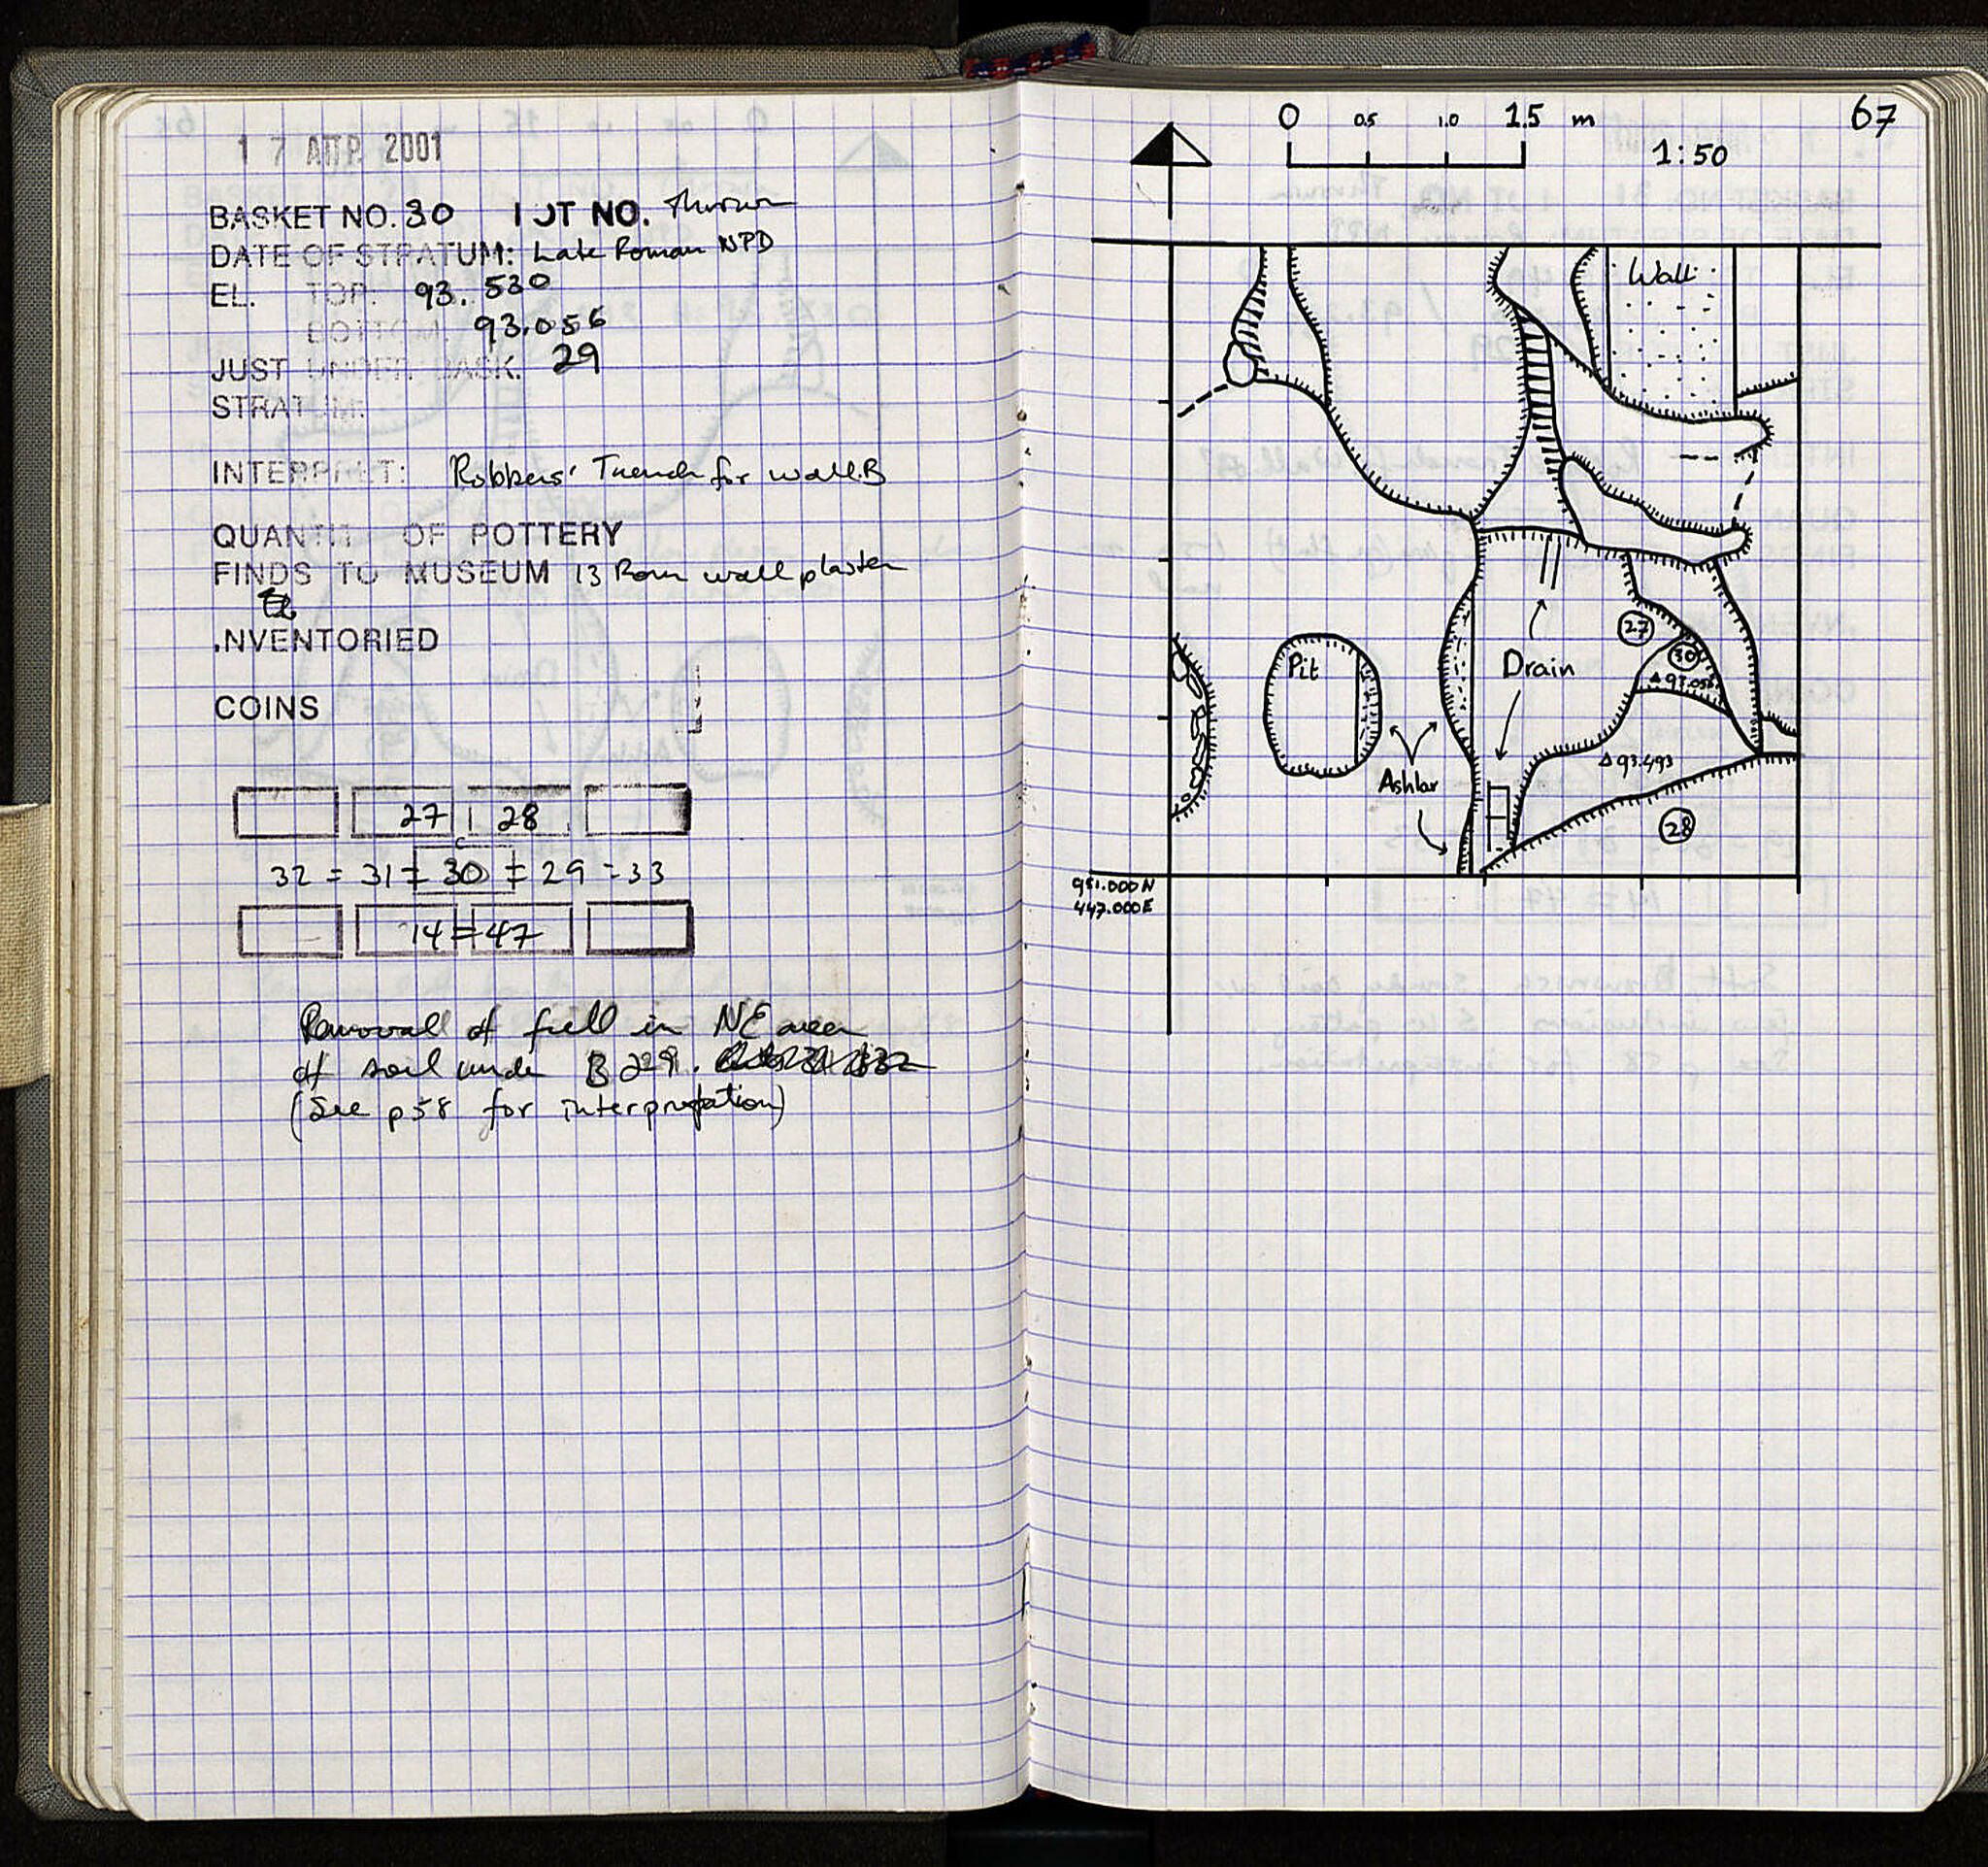 1 7 ΑΠΡ. 2001
BASKET NO. 30 LOT NO. Thrown
DATE OF STRATUM: Late Roman NPD
EL. TOP: 93.530
BOTTOM: 93.056
JUST UNDER BASK. 29
STRATUM:
INTERPRET: Robbers' Trench for wall B
QUANTIT OF POTTERY
FINDS TO MUSEUM 13 Rom wall plaster
.NVENTORIED
COINS
27 28
32 = 31 = 30 = 29 = 33
14 = 47
Removall of fiell in NE area
of soil under B 229.
(See p 58 for interpretation)
67
0 0.5 1.0 1.5 m
1:50
Wall
27
30
93.056
Pit
Drain
93.493
Ashlar
28
951.000 N
447.000 E